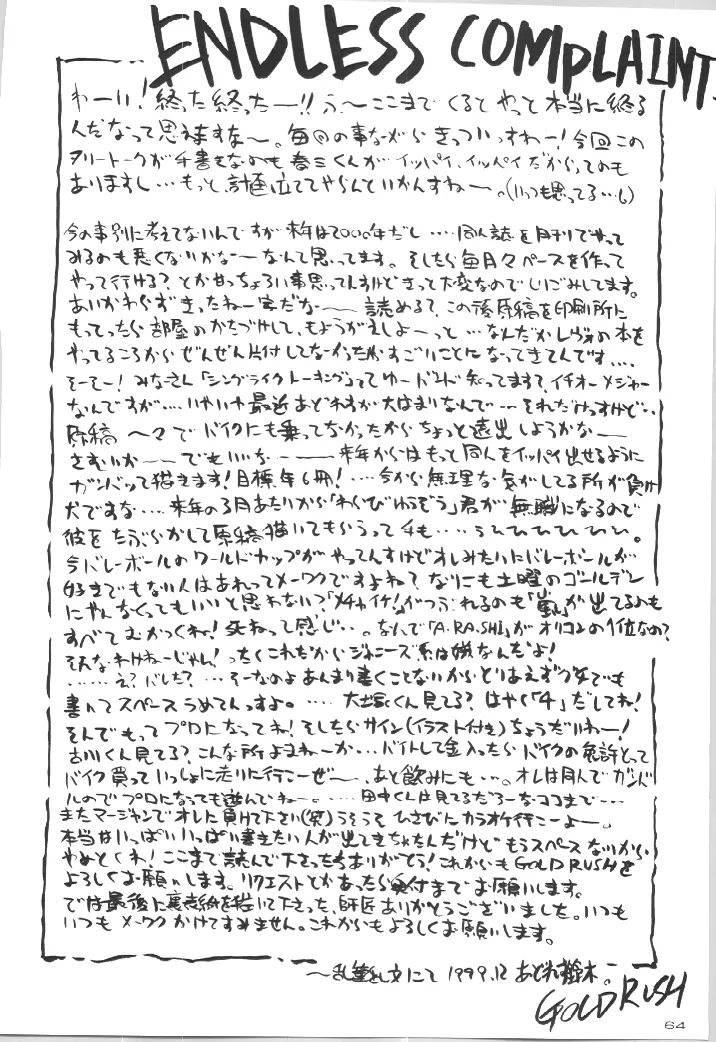 ENDLESS COMPLAINT
わーい!終った終ったー!!う、〜ここまでくるとやっと本当に終る
んだなって思いますな〜。毎回の事ながらきついっすわー!今回この
フリートークが手書きなのも春三くんがイッパイ、イッパイだからってのも
ありますし…もっと計画立ててやらんといかんすねー。(いつも思ってる…し)
今の事別に考えてないんですが来年は2000年だし…同人誌を月刊でやって
みるのも悪くないかなーなんて思ってます。そしたら毎月々ペースを作って
やって行ける?とか甘っちょろい事思ってんすけどきっと大変なのでしりごみしてます。
あいかわらずきったねー字だなー 読める?この後原稿を印刷所に
もってったら部屋のかたづけして、もようがえしよーっと…なんだかレヴォの本を
やってるころからぜんぜん片付してなかったからすごいことになってきてんです…
そーそー!みなさん「シングライクトーキング」ってゆーバンド知ってます?イチオーメジャー
なんですが…いやいや最近あどれすが大はまりなんで…それだけっすけど…
原稿 〜々でバイクにも乗ってなかったからちょっと遠出しようかなー
さむいかーーでもいいなー 来年からはもっと同人をイッパイ出せるように
ガンバッて描きます!目標年6冊!…今から無理な気がしてる所が負け
犬ですな…来年の3月あたりから「わらびゆうぞう」君が無職になるので
彼をたぶらかして原稿描いてもらうって手も…うひひひひひひ。
今バレーボールのワールドカップがやってんすけどオレみたいにバレーボールが
好きでもない人はあれってメーワクですよね?なにも土曜のゴールデン
にやんなくってもいいと思わない?「メチャイケ!」がつぶれるのも「嵐」が出てるのも
すべてむかつくね!死ねって感じ…。なんで「A.RA.SHI」がオリコンの1位なの?
そんなわけねーじゃん!ったくこれだからジャニーズ系は嫌なんだよ!
……え?バレた?…そーなのよあんまり書くことないからとりあえずウソでも
書いてスペースうめてんっすよ。…大塚くん見てる?はやく「4」だしてね!
そんでもってプロになってね!そしたらサイン(イラスト付き)ちょうだいねー!
古川くん見てる?こんな所よまねーか…バイトして金入ったらバイクの免許とって
バイク買っていっしょに走りに行こーぜー、あと飲みにも…。オレは同人でガンバ
ルのでプロになっても遊んでねー。……田中くんは見てるだろーなココまで…
またマージャンでオレに負けて下さい(笑)うそうそひさびにカラオケ行こーよー。
本当はいっぱいいっぱい書きたい人が出てきちゃたんだけどもうスペースないから
やめとくね!ここまで読んで下さった方ありがとう!これからもGOLD RUSHを
よろしくお願いします。リクエストとかあったら受付までお願いします。
では最後に裏表紙を描いて下さった、師匠ありがとうございました。いつも
いつもメーワクかけてすみません。これからもよろしくお願いします。
〜乱筆乱文にて 1999.12 あどれす鈴木。
GOLD RUSH
64